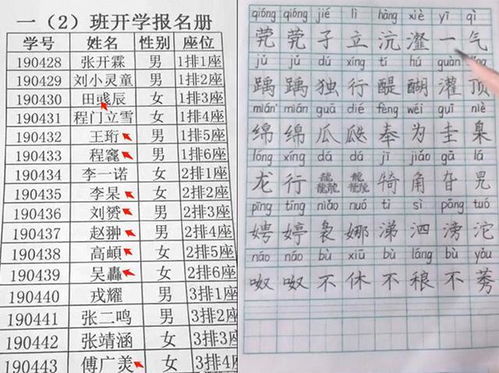 一（2）班开学报名册
学号 姓名 性别 座位
190428 张开霖 男 1排1座
190429 刘小灵童 男 1排2座
190430 田彧辰 女 1排3座
190431 程门立雪 女 1排4座
190432 王珩 男 1排5座
190433 程 男 1排6座
190434 李一诺 女 2排1座
190435 李杲 女 2排2座
190436 刘赟 男 2排3座
190437 赵翀 男 2排4座
190438 高頔 女 2排5座
190439 吴轟 女 2排6座
190440 戎耀 男 3排1座
190441 张二鸣 男 3排2座
190442 张靖涵 女 3排3座
190443 傅广美 女
qióng qióng jié lì hàng xiè yī qì
茕茕孑立沆瀣一气
jǔ jǔ dú xíng tí hú guàn
踽踽独行醍醐灌顶
mián mián guā dié fèng wéi guī niè
绵绵瓜瓞奉为圭臬
lóng xíng dá dá jī jiǎo gā lá
龙行龘龘犄角旮旯
pīng tíng niǎo nuó tì sì pāng tuó
娉婷袅娜涕泗滂沱
náo náo bù xiū bù láng bù yǒu
呶呶不休不稂不莠